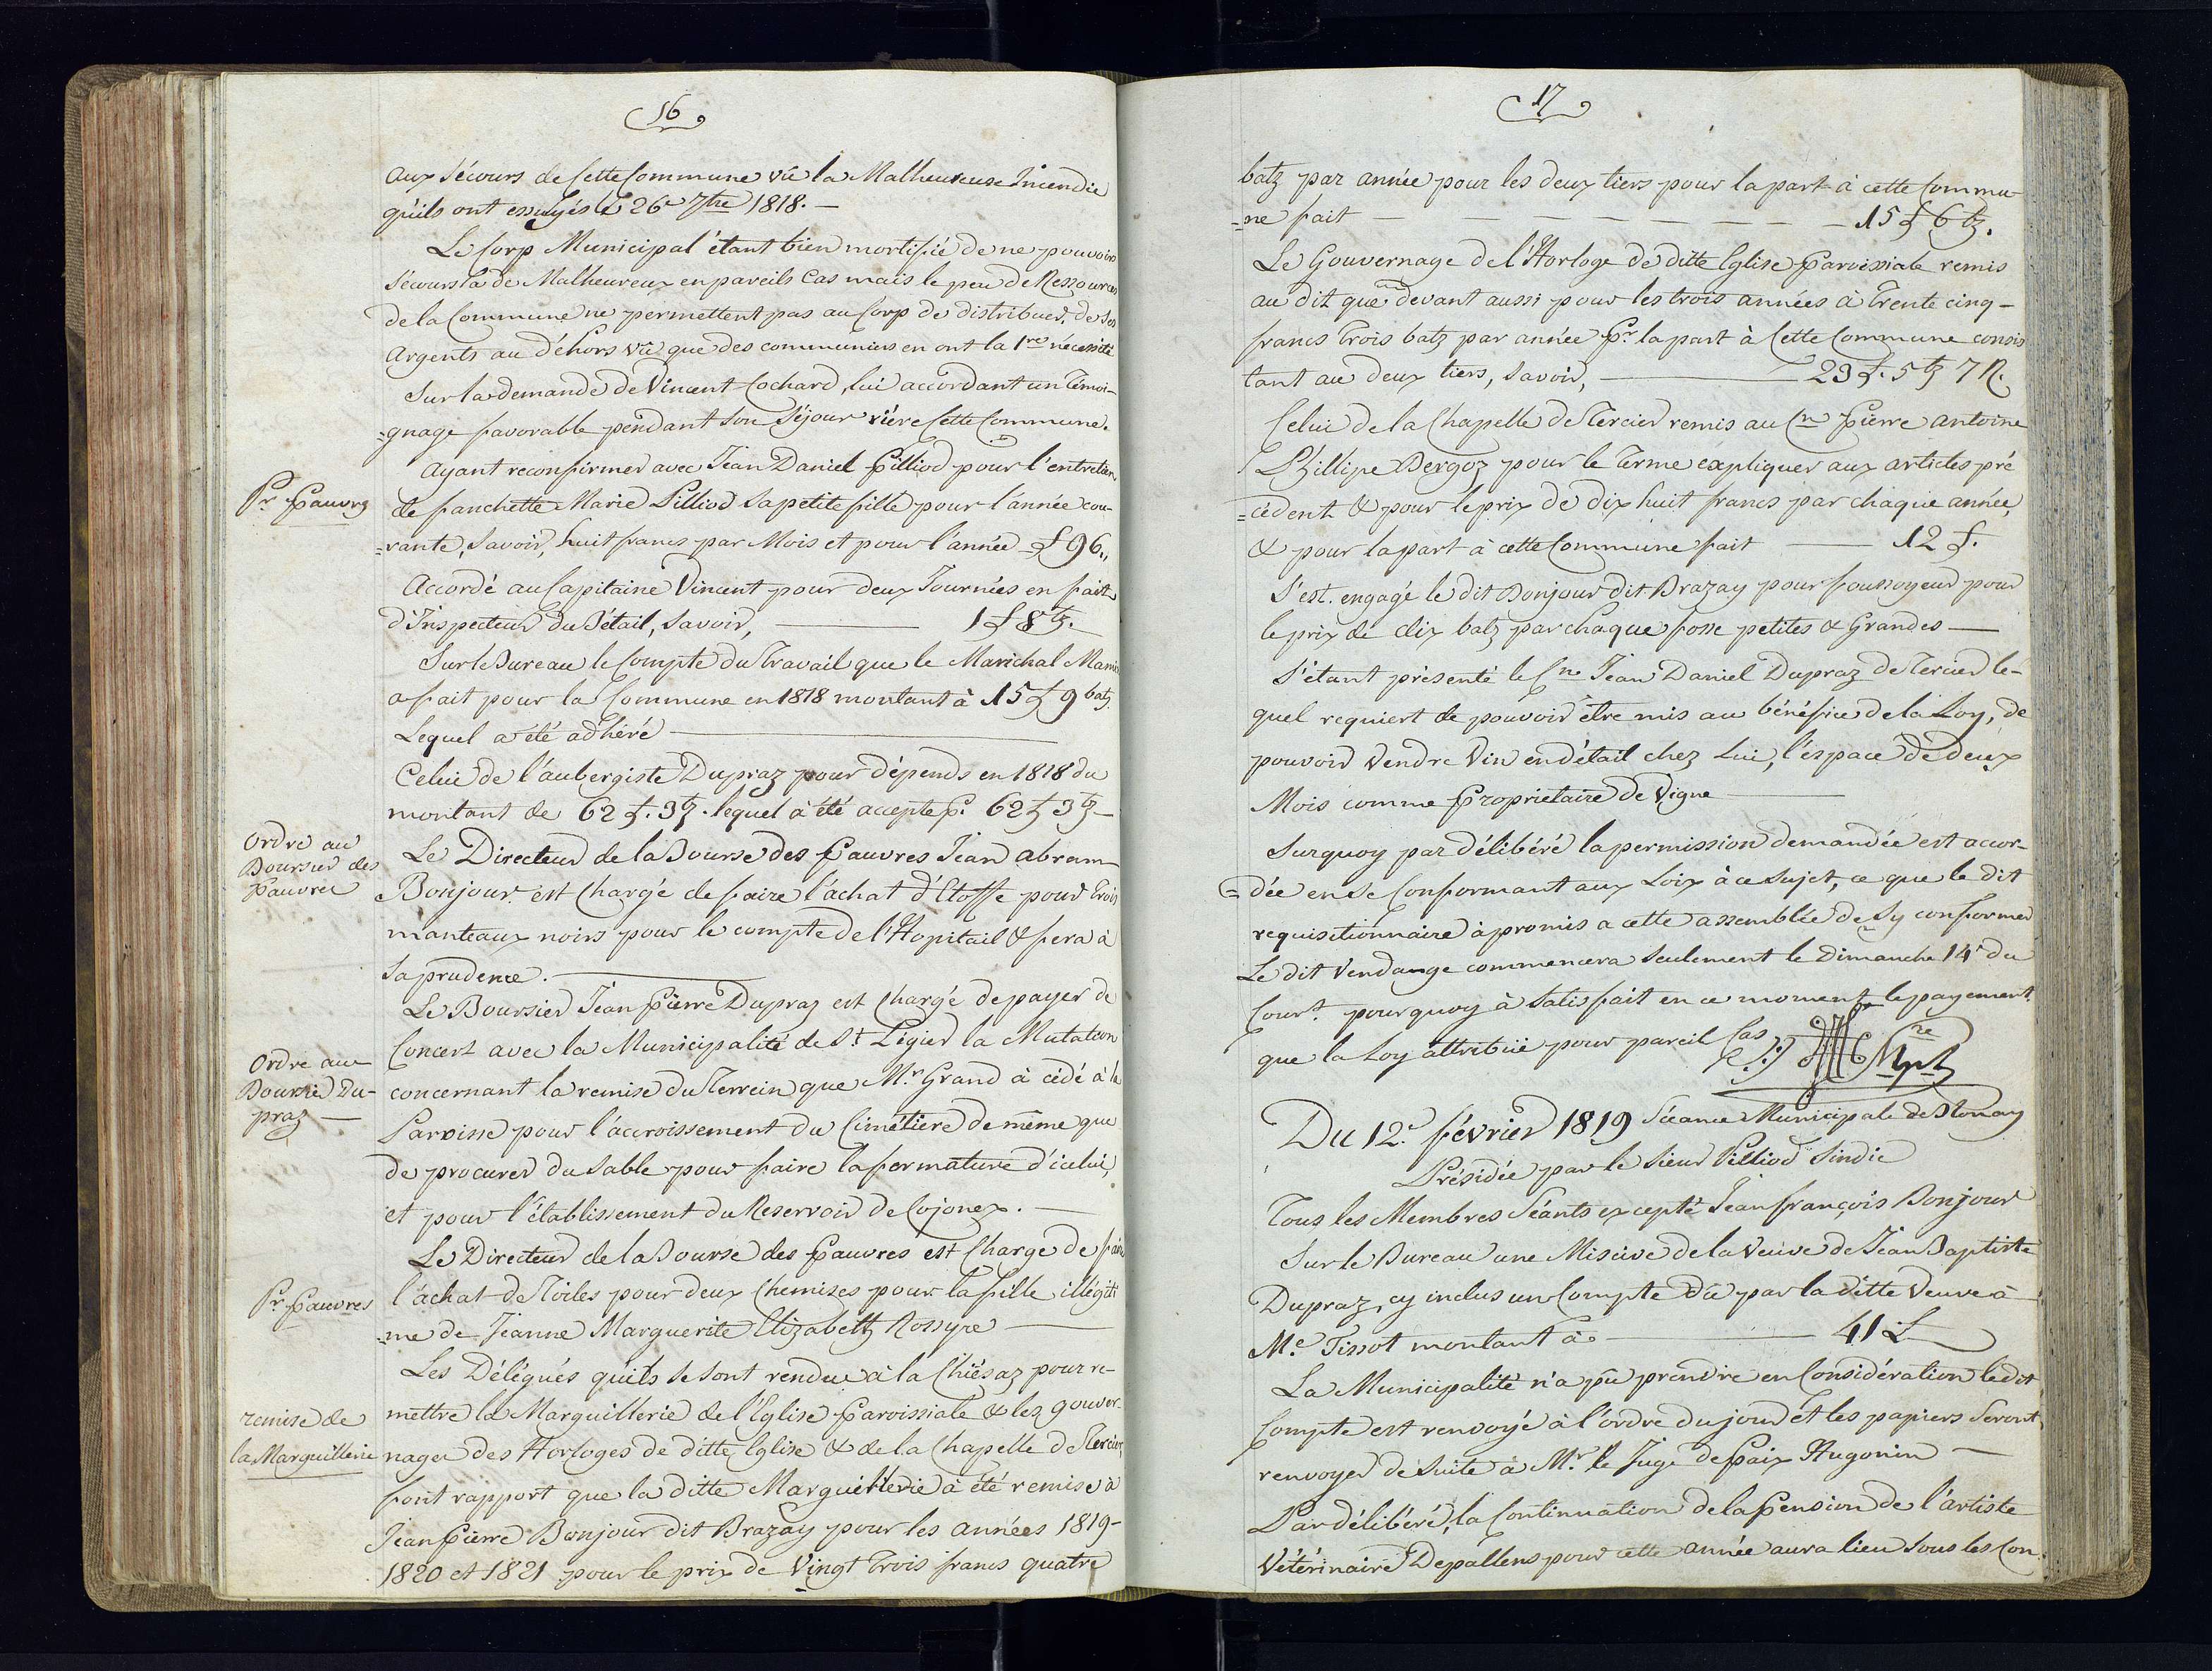 16
aux sécours de Cette Commune vû la Malheureuse Incendie
qu'ils ont essuyés le 26e 7bre 1818. —
Le Corp Municipal étant bien mortifié de ne pouvoir
sécours la de Malheureux en pareils Cas mais le peu de Ressources
de la Commune ne permettent pas au Corp de distribuer de Ses
Argents au déhors vû que des communiers en ont la 1re nécessité
Sur la demande de Vincent Cochard, lui accordant un Témoi-
=gnage favorable péndant son Séjour riére Cette Commune.
Pr Pauvrs
Ayant reconfirmer avec Jean Daniel Pilliod pour l'entretien
de fanchette Marie Pilliod Sa petite fille pour l'année cou-
=rante, Savoir, huit francs par Mois et pour l'année £ 96.,,
Accordé au Capitaine Vincent pour deux Journées en fait
d'Inspecteur du Bétail, Savoir, — 1 £ 8 bz.
Sur le Bureau le Compte du Travail que le Maréchal
a fait pour la Commune en 1818 montant à 15 £ 9 batz
Lequel a été adhéré —
Celui de l'aubergiste Dupraz pour dépends en 1818 du
montant de 62 £. 3 bz. lequel à été accepté pr. 62 £ 3 bz —
Ordre au
Boursier des
Pauvres
Le Directeur de la Bourse des Pauvres Jean Abram
Bonjour est Chargé de faire l'achat d'Etoffe pour trois
manteaux noirs pour le compte de l'Hopitail & fera à
Sa prudence. —
Ordre au
Boursier Du-
praz —
Le Boursier Jean Pierre Dupraz est Chargé de payer de
Concert avec la Municipalité de St Légier la Mutation
concernant la remise du Terrein que Mr. Grand à cédé à la
Paroisse pour l'accroissement du Cimétiére de même que
de procurer du Sable pour faire la fermature d'icelui,
et pour l'établissement du Reservoir de Cojonex. —
Pr Pauvres
Le Directeur de la Bourse des Pauvres est Chargé de faire
l'achat de Toiles pour deux Chemises pour la fille illégiti
=me de Jeanne Marguerite Elizabeth Rossyre —
remise de
la Marguillerie
Les Délégués qu'ils Se sont rendue à la Chiésaz pour re-
mettre la Marguillérie de l'Eglise Paroissiale & les gouver-
nages des Horloges de ditte Eglise & de la Chapelle de Tercier,
font rapport que la ditte Marguillerie à été remise à
Jean Pierre Bonjour dit Brazay pour les années 1819-
1820 et 1821 pour le prix de Vingt Trois francs quatre
17
batz par année pour les deux tiers pour la part à cette Commu-
=ne fait — 15 £ 6 bz.
Le Gouvernage de l'Horloge de ditte Eglise Paroissiale remis
au dit que devant aussi pour les trois années à Trente cinq-
francs Trois batz par année Pr. la part à Cette Commune consis
tant au deux tiers, Savoir, — 23 £. 5 bz 7 R.
Celui de la Chapelle de Tercier remis au Cn Pierre Antoine
Phillipe Dergoz pour le Terme expliquer aux articles pré
=cédent & pour le prix de dix huit francs par chaque année,
& pour la part à cette Commune fait — 12 £.
S'est engagé le dit Bonjour dit Brazay pour foussoyeur pour
le prix de dix batz par chaque fosse petites & Grandes —
S'étant présenté le Cne Jean Daniel Dupraz de Tercier le-
quel requiert de pouvoir être mis au bénéfice de la Loy, de
pouvoir Vendre Vin en détail chez Lui, l'espace de deux
Mois comme Proprietaire de Vigne —
Surquoy par délibéré la permission demandée est accor-
=dée en Se Conformant aux Loix à ce Sujet, ce que le dit
requisitionnaire à promis a cette assemblée de Sy conformer
Le dit Vendange commencera Seulement le Dimanche 14e du
Court. pourquoy à Satisfait en ce moment le payement.
que la Loy attribüe pour pareil Cas
Du 12e. février 1819 Séance Municipale de Blonay
Présidée par le Sieur Pilliod Sindic
Tous les Membres Séants excepté Jean françois Bonjour
Sur le Bureau une Missive de la Veuve de Jean Baptiste
Dupraz, cy inclus un Compte dû par la ditte Veuve à
Me. Tissot montant à — 41 £
La Municipalité n'a pû prendre en Considération le dit
Compte est renvoyé à l'ordre du jour et les papiers Seront
renvoyer de Suite à Mr. le Juge de Paix Hugonin —
Par délibéré, la Continuation de la Pension de l'artiste
Vétérinaire Depallens pour cette année aura lieu Sous les Con